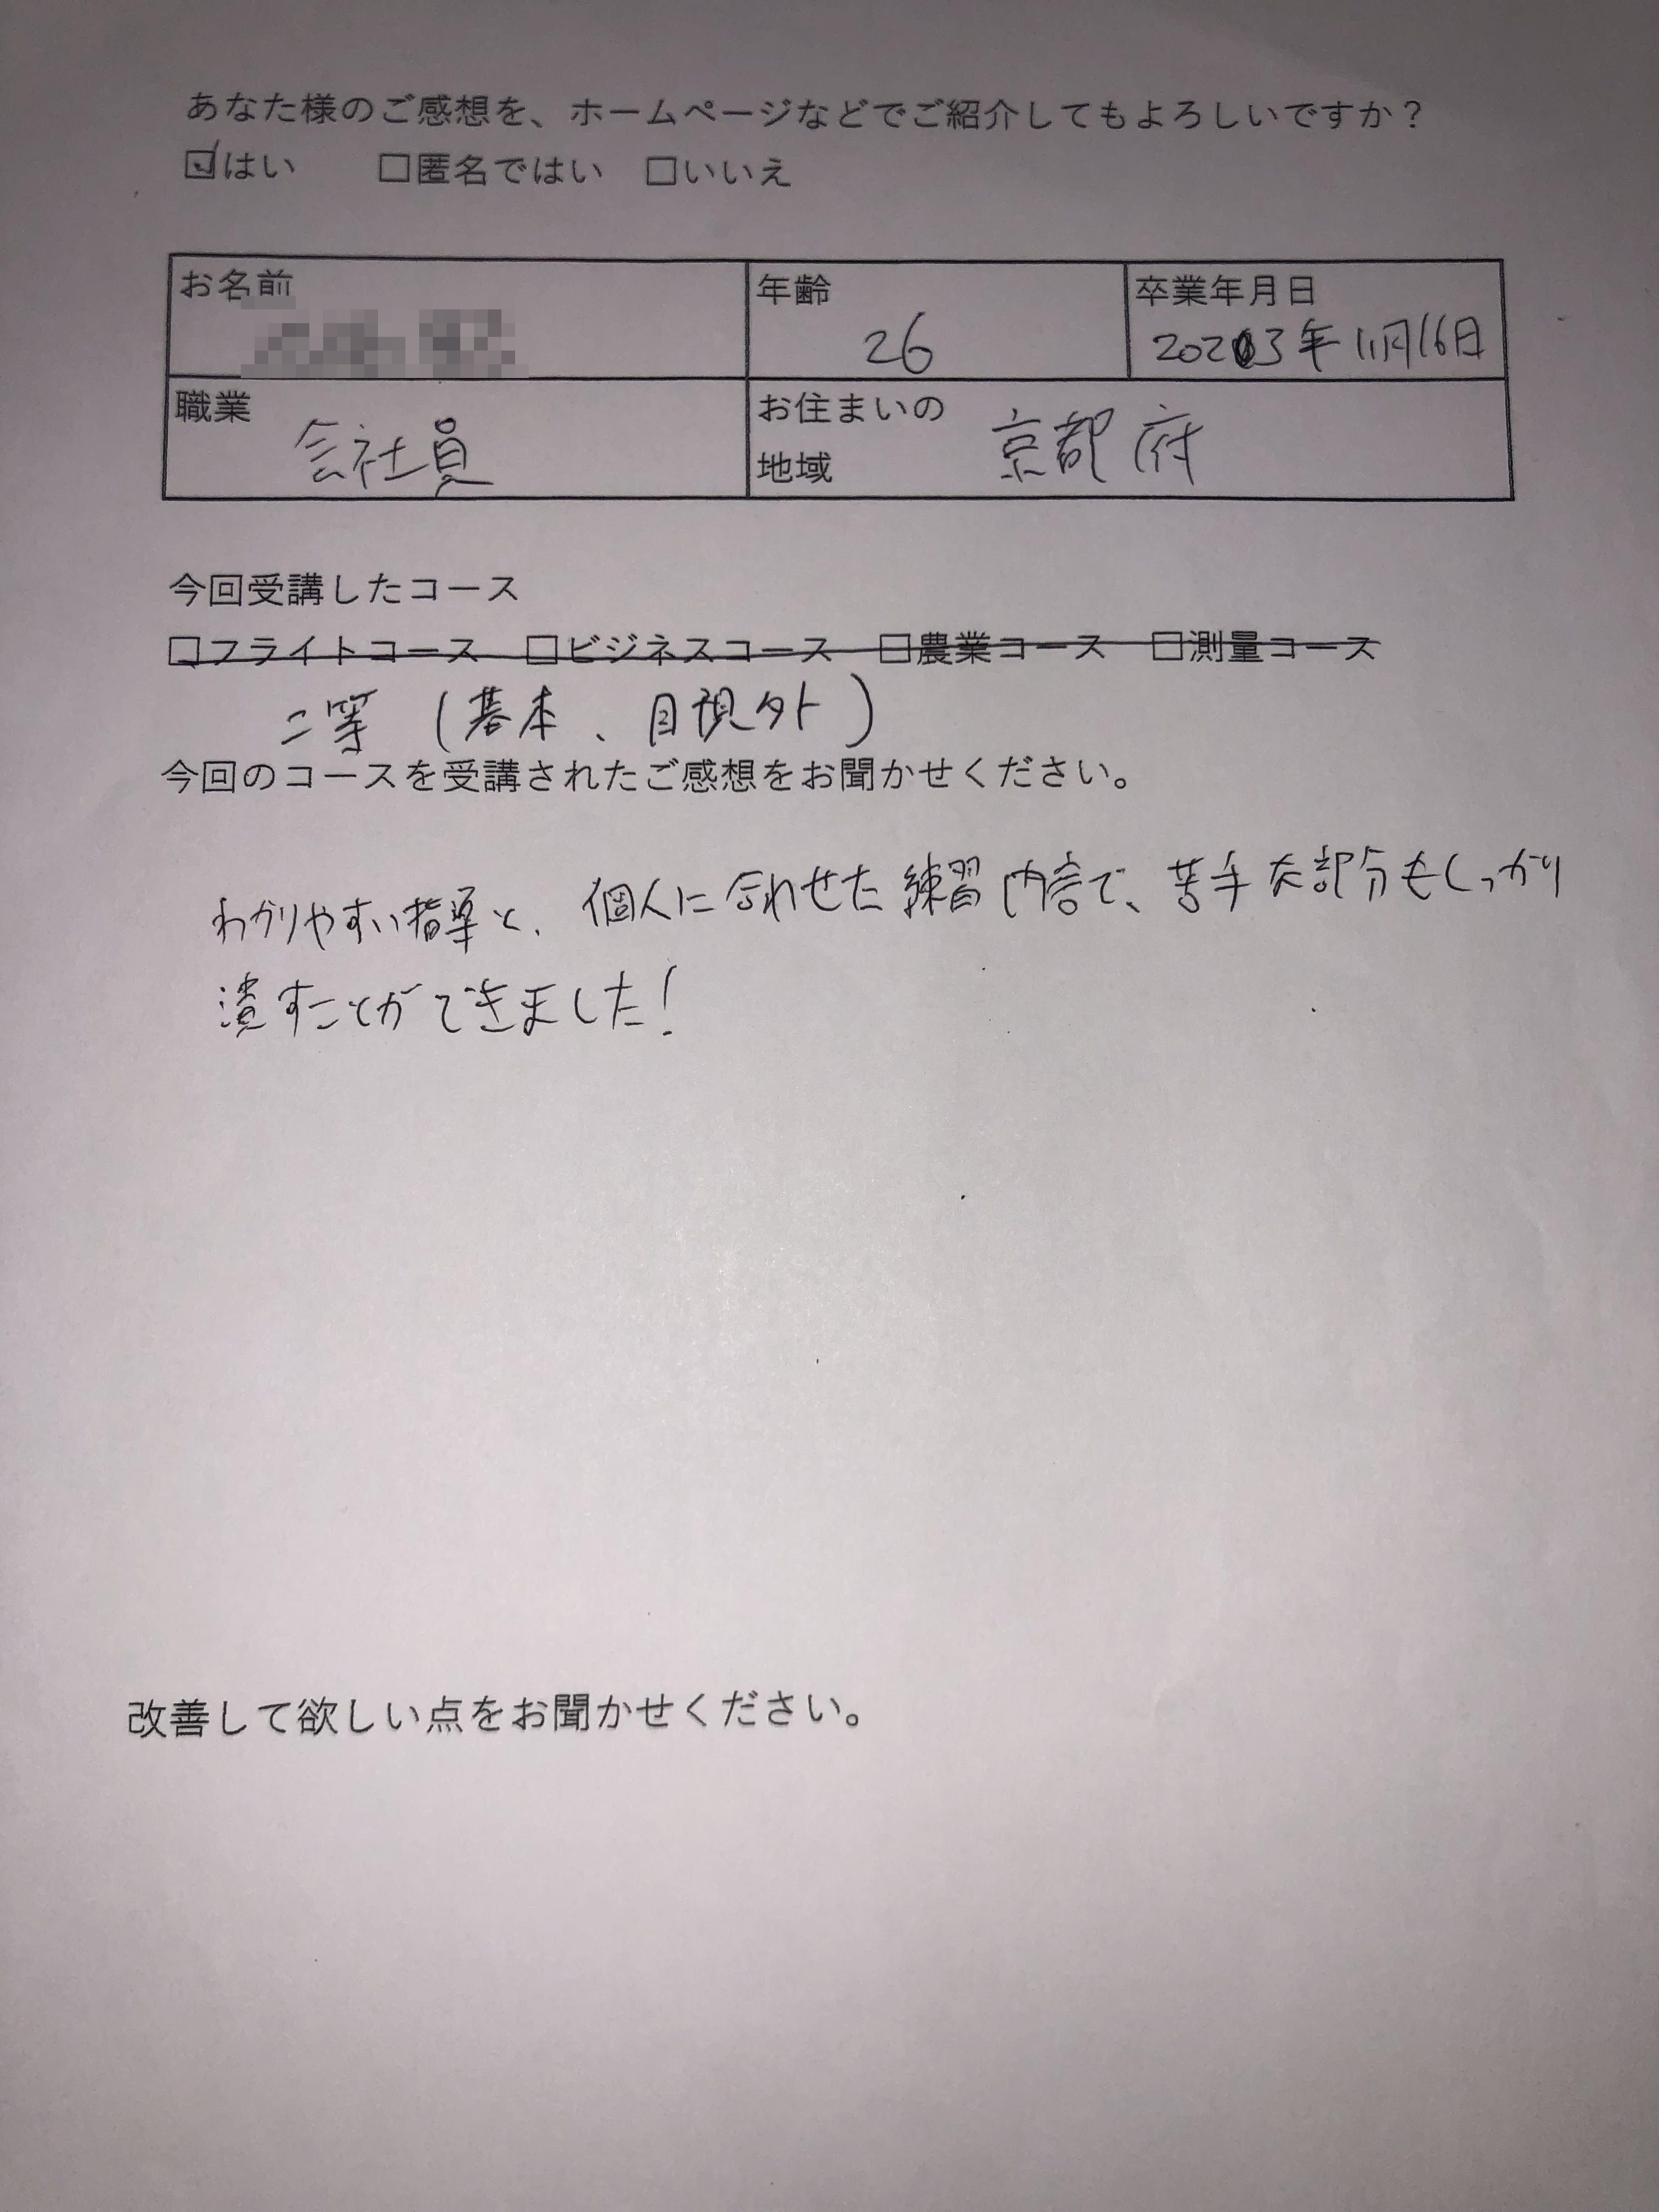 あなた様のご感想を、ホームページなどでご紹介してもよろしいですか？
☑はい　□匿名ではい　□いいえ
お名前
年齢
卒業年月日
26
2023年11月16日
職業
お住まいの
会社員
京都府
地域
今回受講したコース
□フライトコース　□ビジネスコース　□農業コース　□測量コース
二等（基本、目視外）
今回のコースを受講されたご感想をお聞かせください。
わかりやすい指導と、個人に合わせた練習内容で、苦手な部分もしっかり
潰すことができました！
改善して欲しい点をお聞かせください。